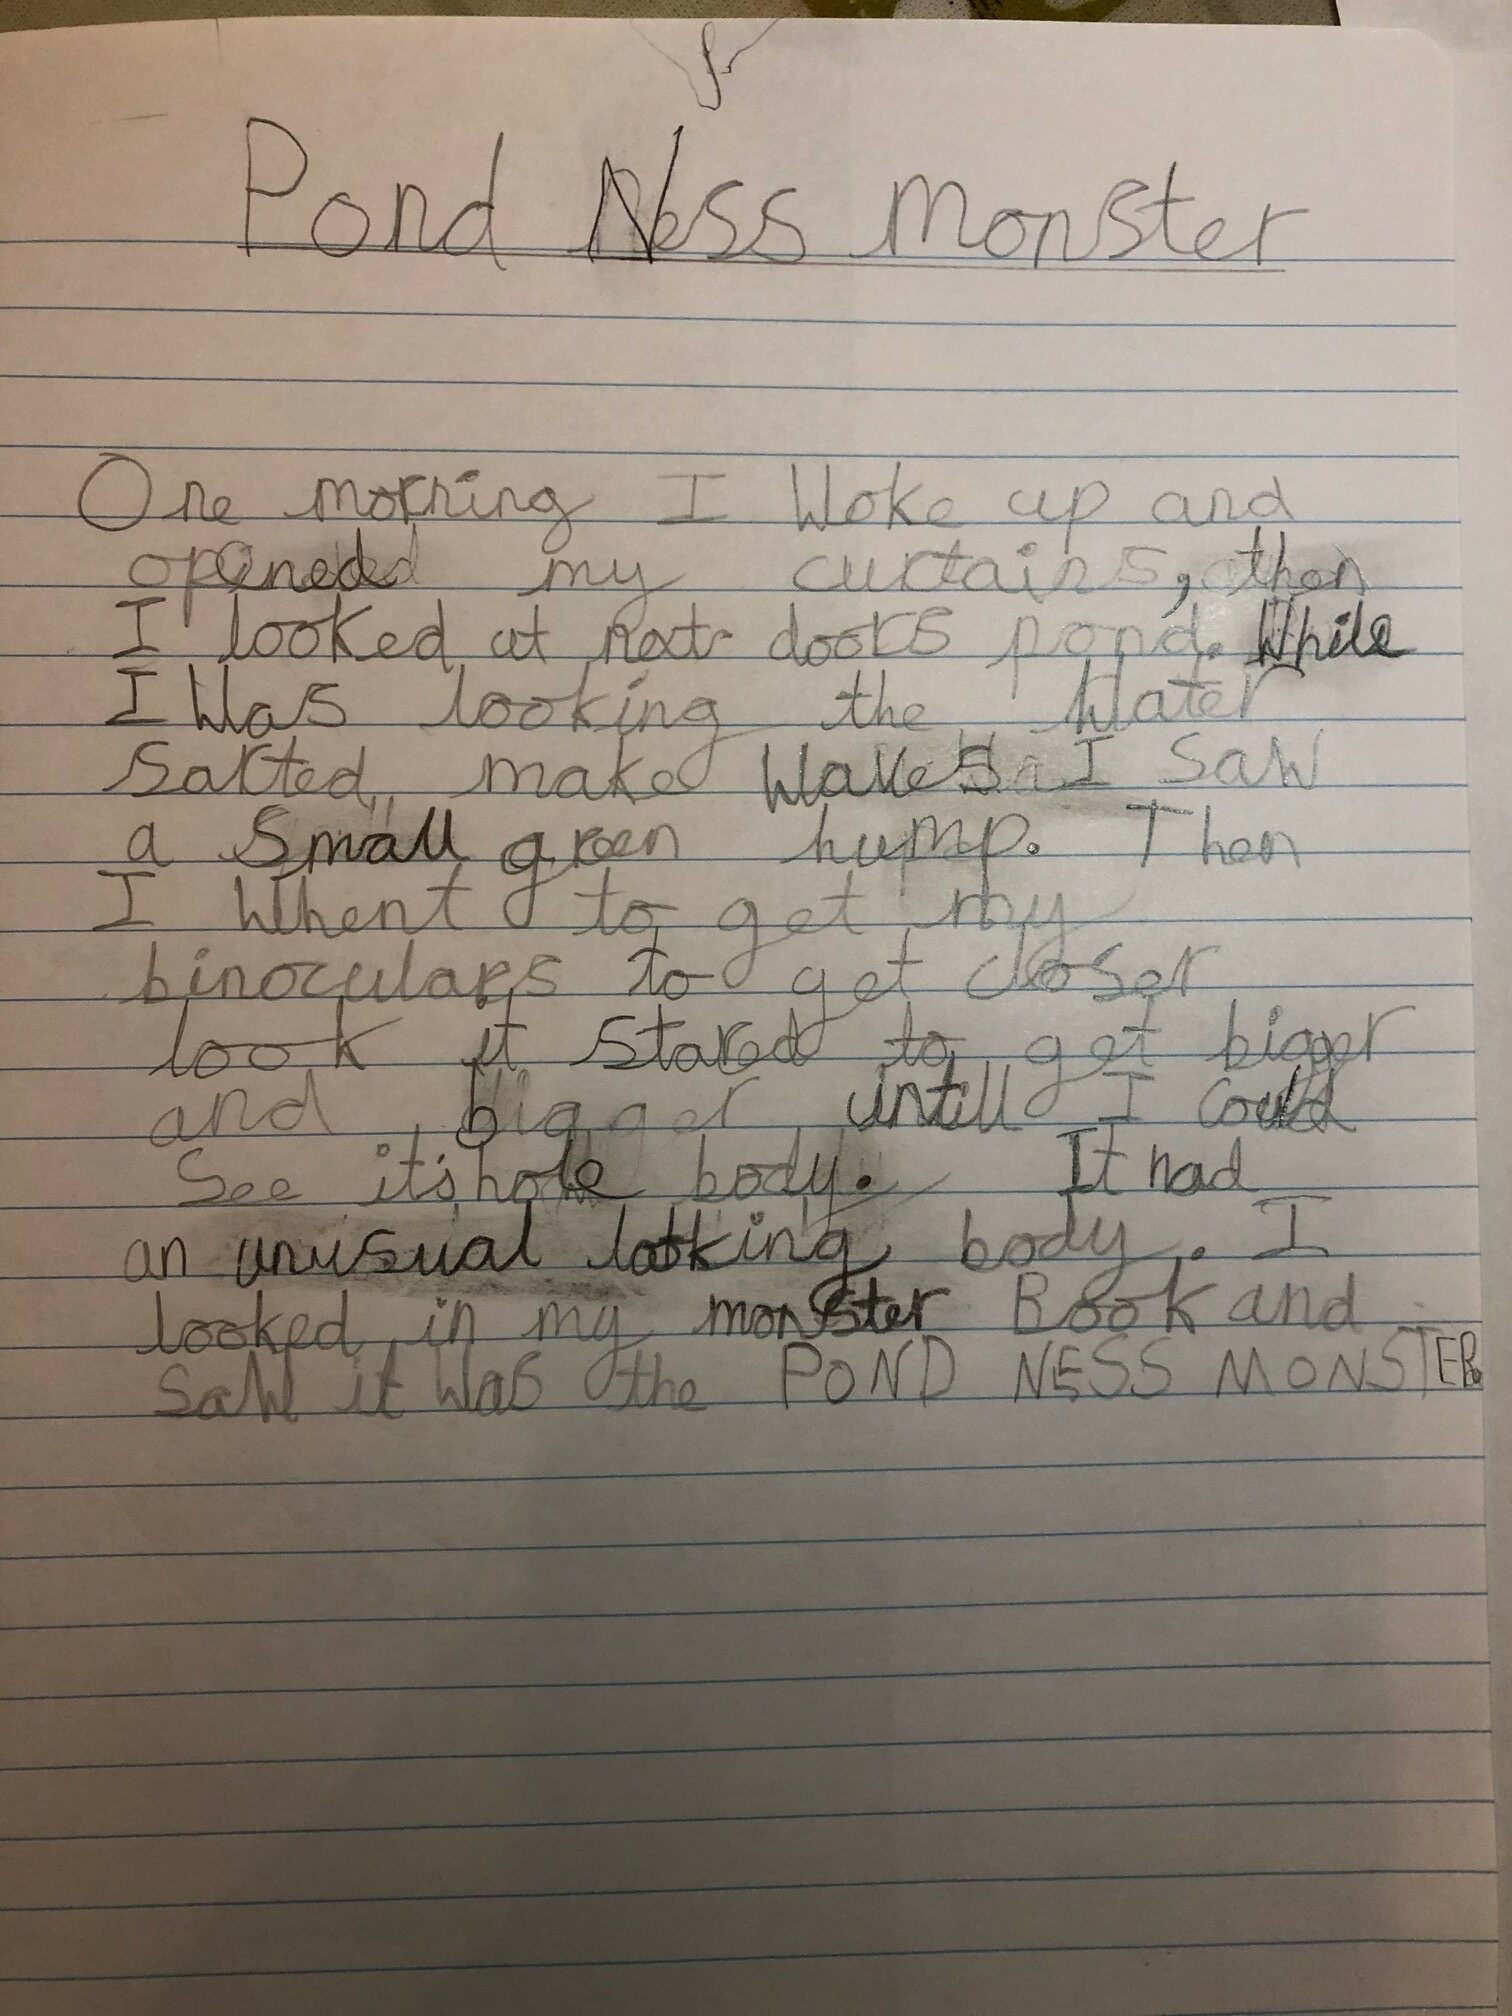 Pond Ness Monster
One morning I Woke up and
opened my curtains, then
I looked at next doors pond. While
I Was looking the Water
Sarted make Waves I Saw
a Small green hump. Then
I Whent to get my
binoculars to get closer
look it stared to get bigger
and bigger untill I could
See it's hole body. It had
an unusual looking body. I
looked in my monster Book and
saw it was the POND NESS MONSTER.